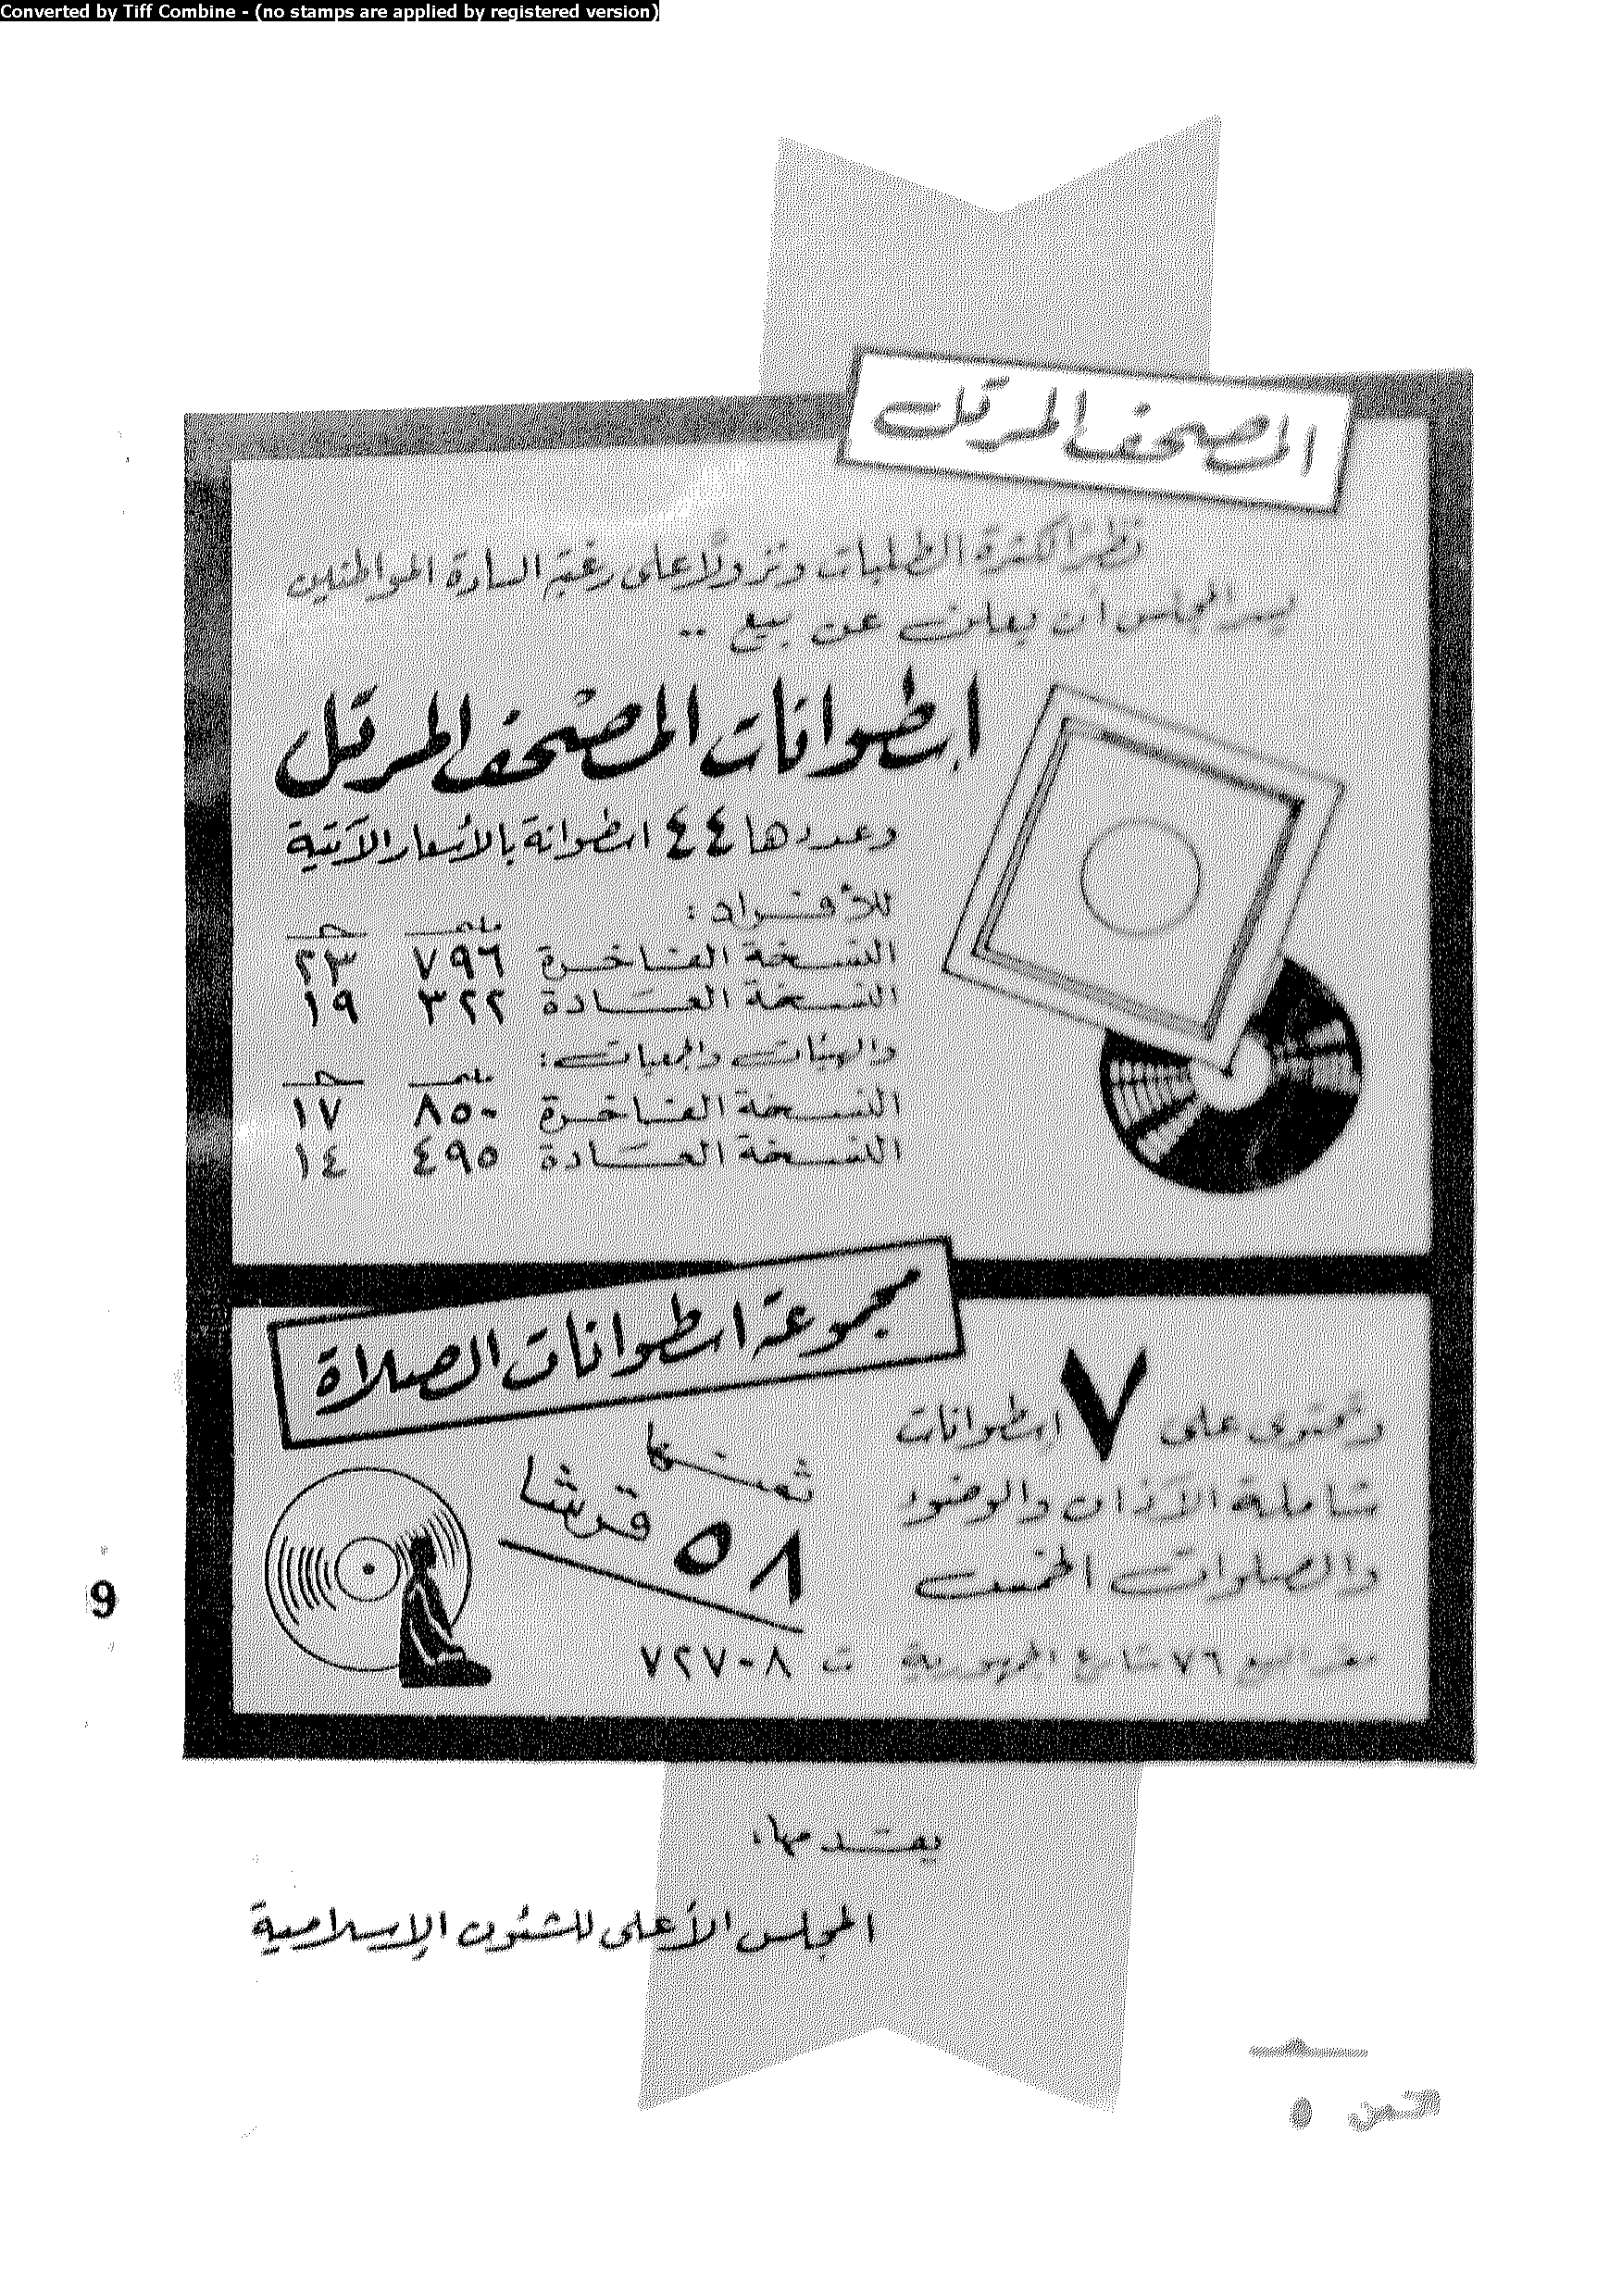 Converted by Tiff Combine - (no stamps are applied by registered version)
المصحف المرتل
نظرًا لكثرة الطلبات ونزولًا على رغبة السادة المواطنين
يسر المجلس أن يعلن عن بيع ..
اسطوانات المصحف المرتل
وعددها ٤٤ اسطوانة بالأسعار الآتية
للأفراد :
مليم جـ
النسخة الفاخرة ٧٩٦ ٢٣
النسخة العادة ٣٢٢ ١٩
والهيئات والجمعيات :
مليم جـ
النسخة الفاخرة ٨٥٠ ١٧
النسخة العادة ٤٩٥ ١٤
مجموعة اسطوانات الصلاة
وتحتوى على ٧ اسطوانات
شاملة الآذان والوضوء
والصلوات الخمس
ثمنها
٥٨ قرشا
٧٦ شارع الجمهورية ت ٧٢٧٠٨
9
يقدمها
المجلس الأعلى للشئون الإسلامية
الثمن ٥